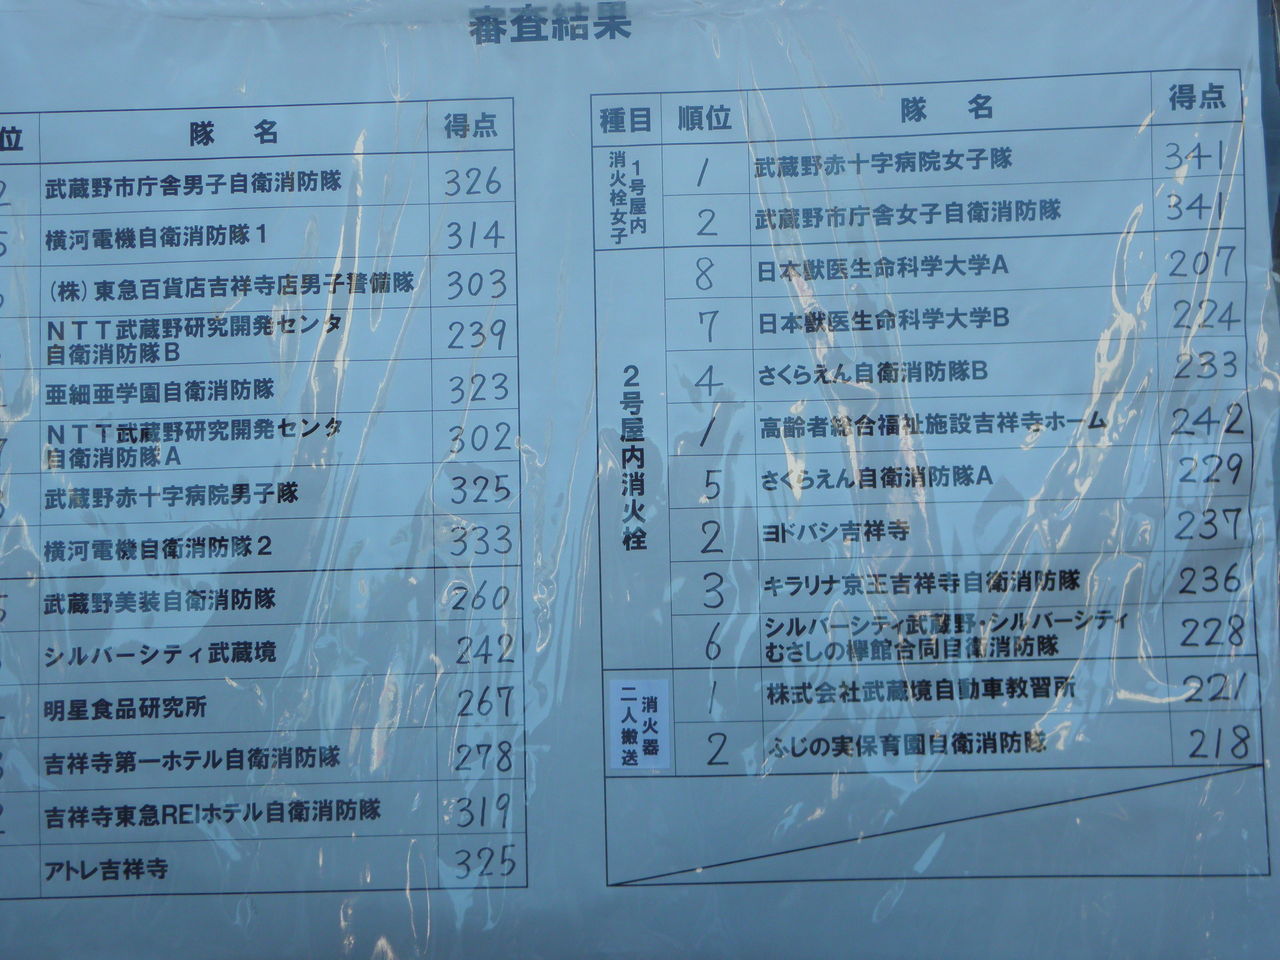 審査結果
位 隊 名 得点
2 武蔵野市庁舎男子自衛消防隊 326
5 横河電機自衛消防隊1 314
(株)東急百貨店吉祥寺店男子警備隊 303
NTT武蔵野研究開発センタ
自衛消防隊B 239
亜細亜学園自衛消防隊 323
7 NTT武蔵野研究開発センタ
自衛消防隊A 302
3 武蔵野赤十字病院男子隊 325
横河電機自衛消防隊2 333
5 武蔵野美装自衛消防隊 260
シルバーシティ武蔵境 242
明星食品研究所 267
3 吉祥寺第一ホテル自衛消防隊 278
2 吉祥寺東急REIホテル自衛消防隊 319
アトレ吉祥寺 325
種目 順位 隊 名 得点
1号屋内
消火栓女子
1 武蔵野赤十字病院女子隊 341
2 武蔵野市庁舎女子自衛消防隊 341
2号屋内消火栓
8 日本獣医生命科学大学A 207
7 日本獣医生命科学大学B 224
4 さくらえん自衛消防隊B 233
1 高齢者総合福祉施設吉祥寺ホーム 242
5 さくらえん自衛消防隊A 229
2 ヨドバシ吉祥寺 237
3 キラリナ京王吉祥寺自衛消防隊 236
6 シルバーシティ武蔵野・シルバーシティ
むさしの欅館合同自衛消防隊 228
消火器
二人搬送
1 株式会社武蔵境自動車教習所 221
2 ふじの実保育園自衛消防隊 218